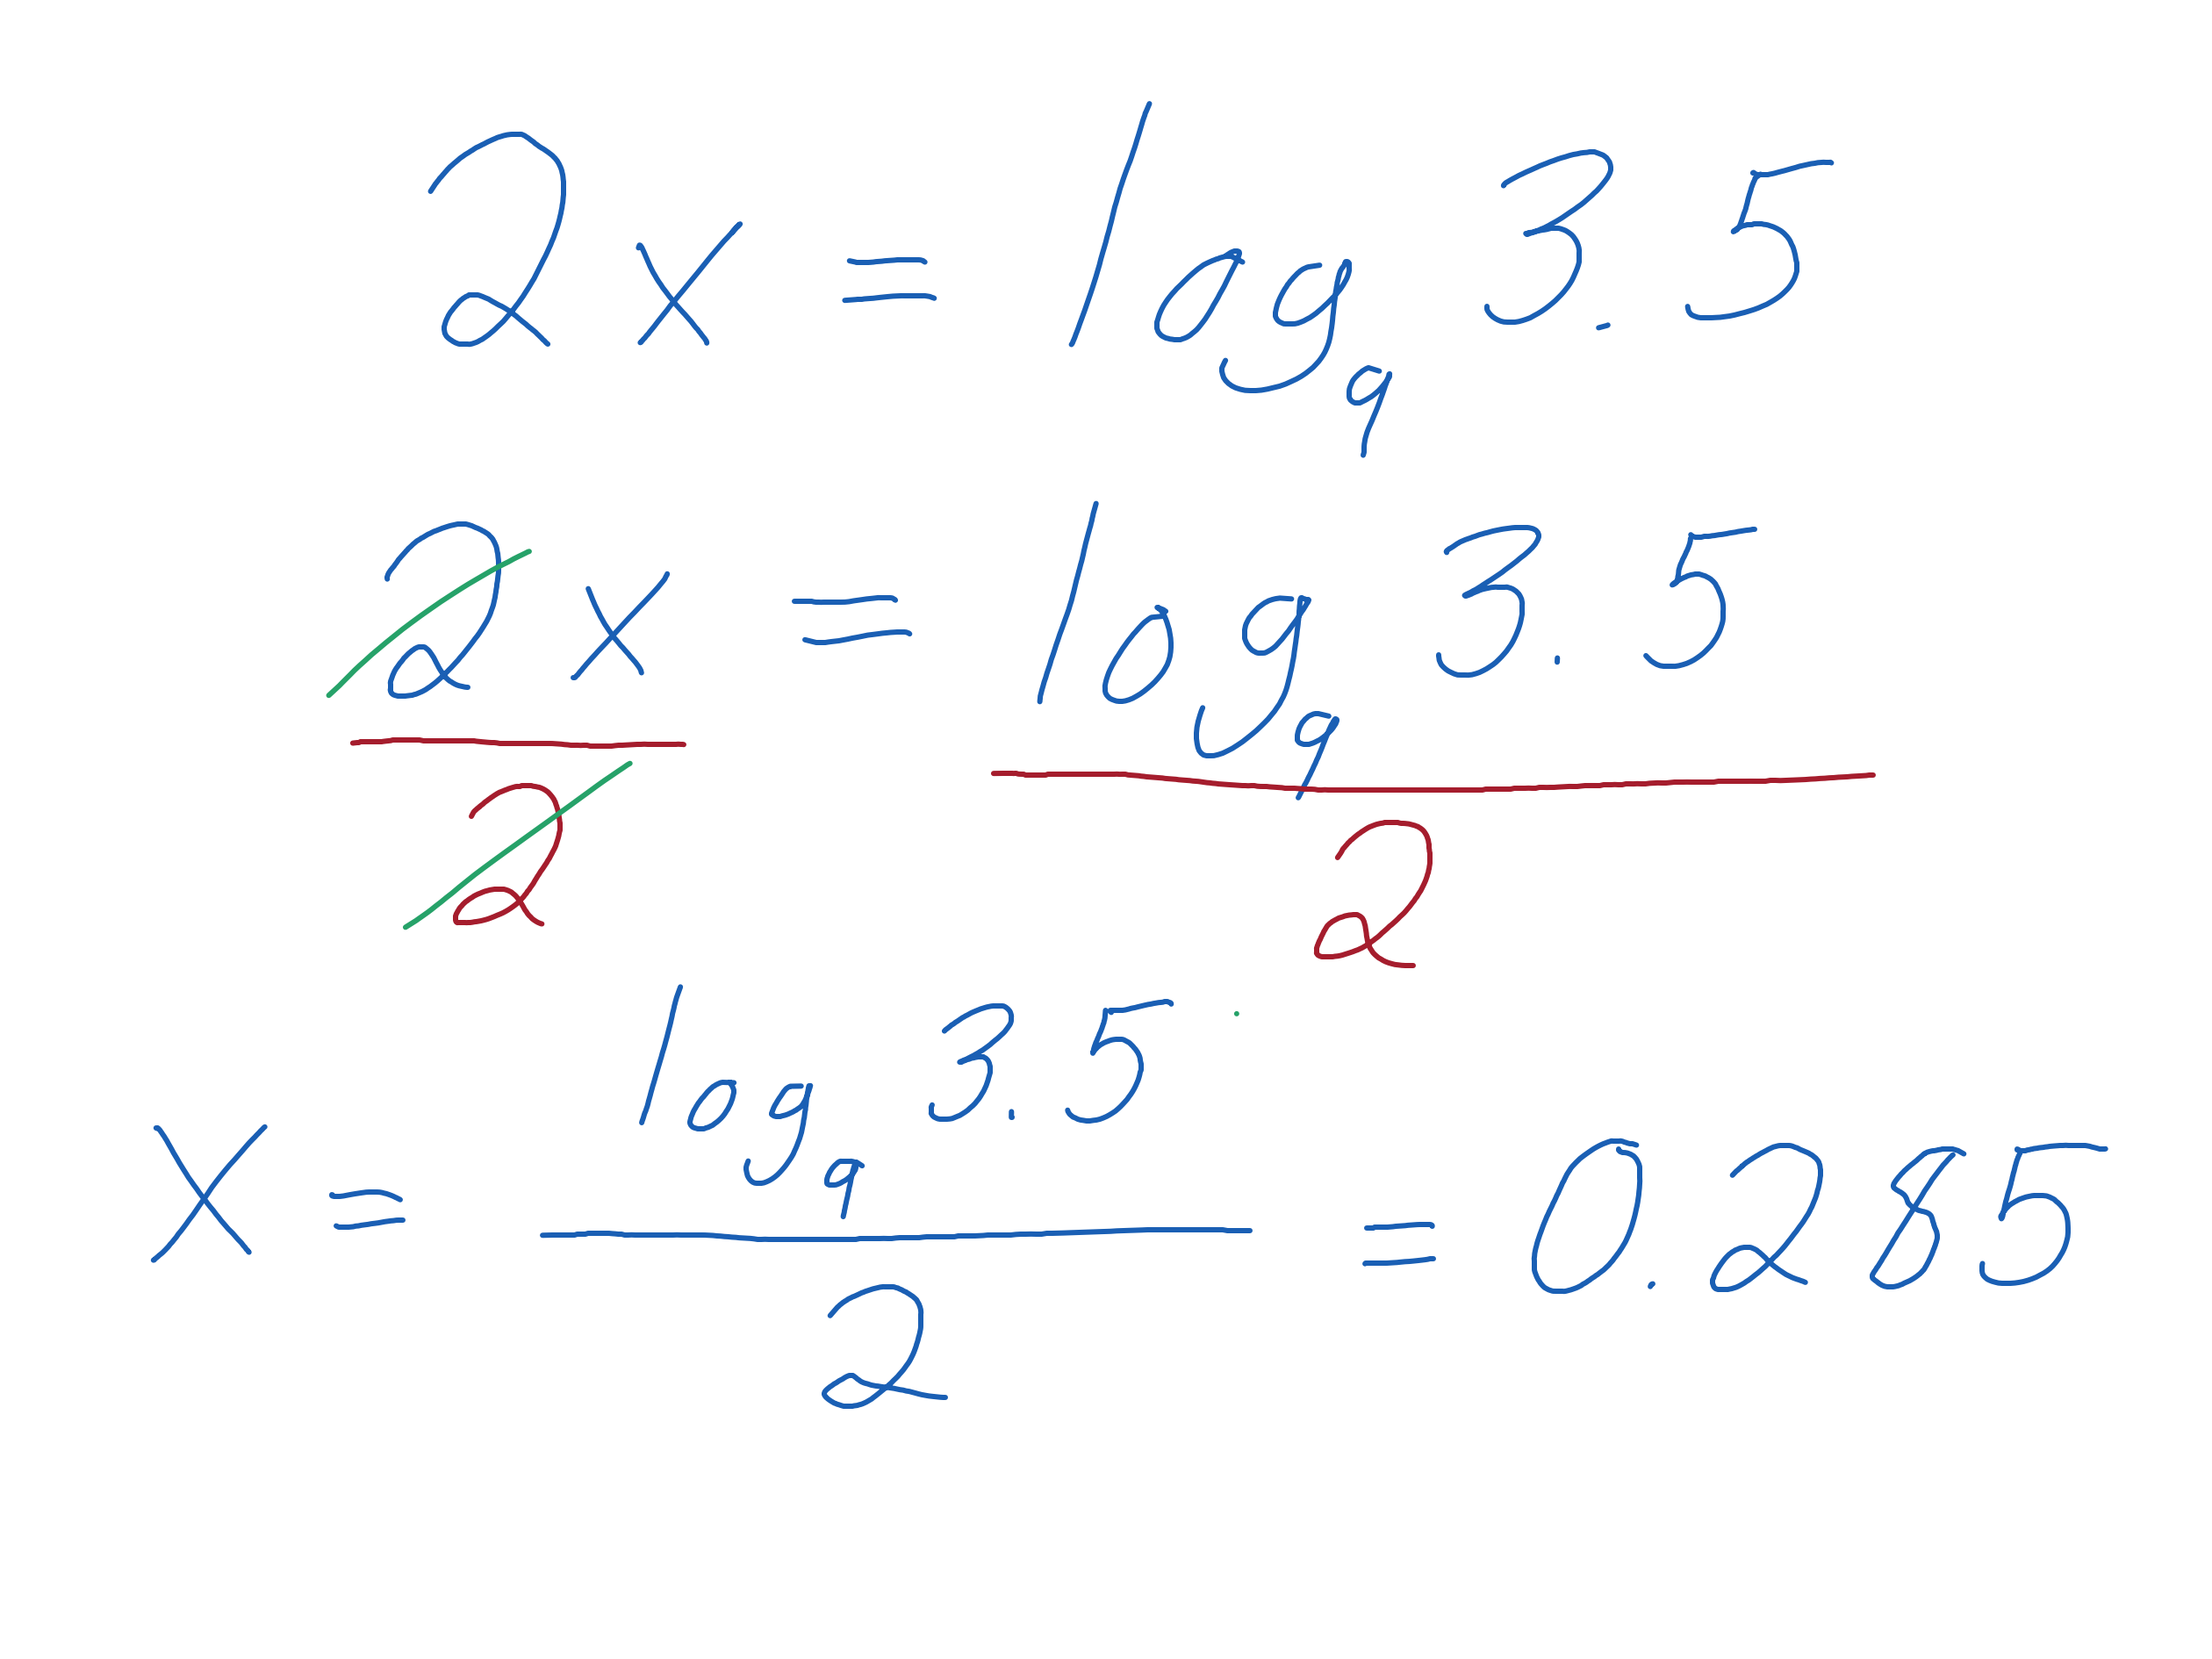 2x = log₉ 3.5
2x/2 = log₉ 3.5/2
x = log₉ 3.5/2 = 0.285